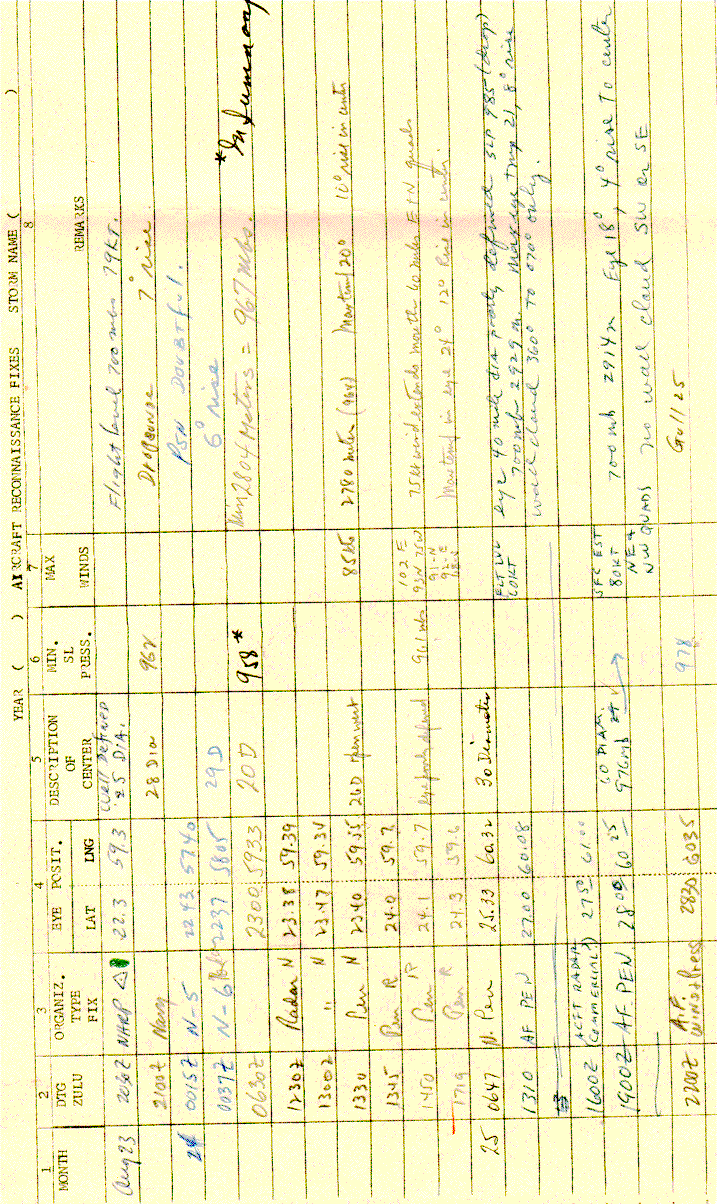 YEAR ( ) AIRCRAFT RECONNAISSANCE FIXES STORM NAME ( )
1 2 3 4 5 6 7 8
MONTH DTG ZULU ORGANIZ. TYPE FIX EYE POSIT. LAT LNG DESCRIPTION OF CENTER MIN. SL PRESS. MAX WINDS REMARKS
Aug 23 NHRP 22.3 59.3 Well Defined 25 DIA. Flight level 700 mbs 79KT.
2100Z Navy 28 Dia 962 Dropsonde 7° rise
24 0015Z N-5 2243 5740 PSN Doubtful.
0037Z N-6 2237 5805 29 D 6° rise
0630Z 2300 5933 20 D 958* Min 2804 Meters = 967 mbs. *In Summary
1230Z Radar N 23.38 59.39
1300Z " N 23.47 59.34
1330 Pen N 2340 59.55 26D open west 85kts 2780 meter (964) Max temp 20° 10° rise in center
1345 Pen R 24.0 59.7
1450 Pen R 24.1 59.7 eye poorly defined 961 mbs 102 E 93N 75W 75kt wind extends north 60 miles E & N quads
1719 Pen R 24.3 59.6 Max temp in eye 24° 12° rise in center.
25 0647 N. Pen 25.33 60.32 30 Diameter FLT LVL 60KT eye 40 mile dia poorly defined SLP 985 (drop)
700 mb 2929 m. Max eye temp 21, 8° rise
1310 AF PEN 27.00 60.08 wall cloud 360° to 070° only.
1600Z ACFT RADAR (COMMERCIAL) 27.5° 61.00
1900Z AF. PEN 2800 60 25 60 DIAM 976 mb SFC EST 80KT NE & NW QUADS 700 mb 2914m Eye 18°, 4° rise to center
no wall cloud SW or SE
2200Z A.F. Wind + Press 2830 6035 978 Gull 25